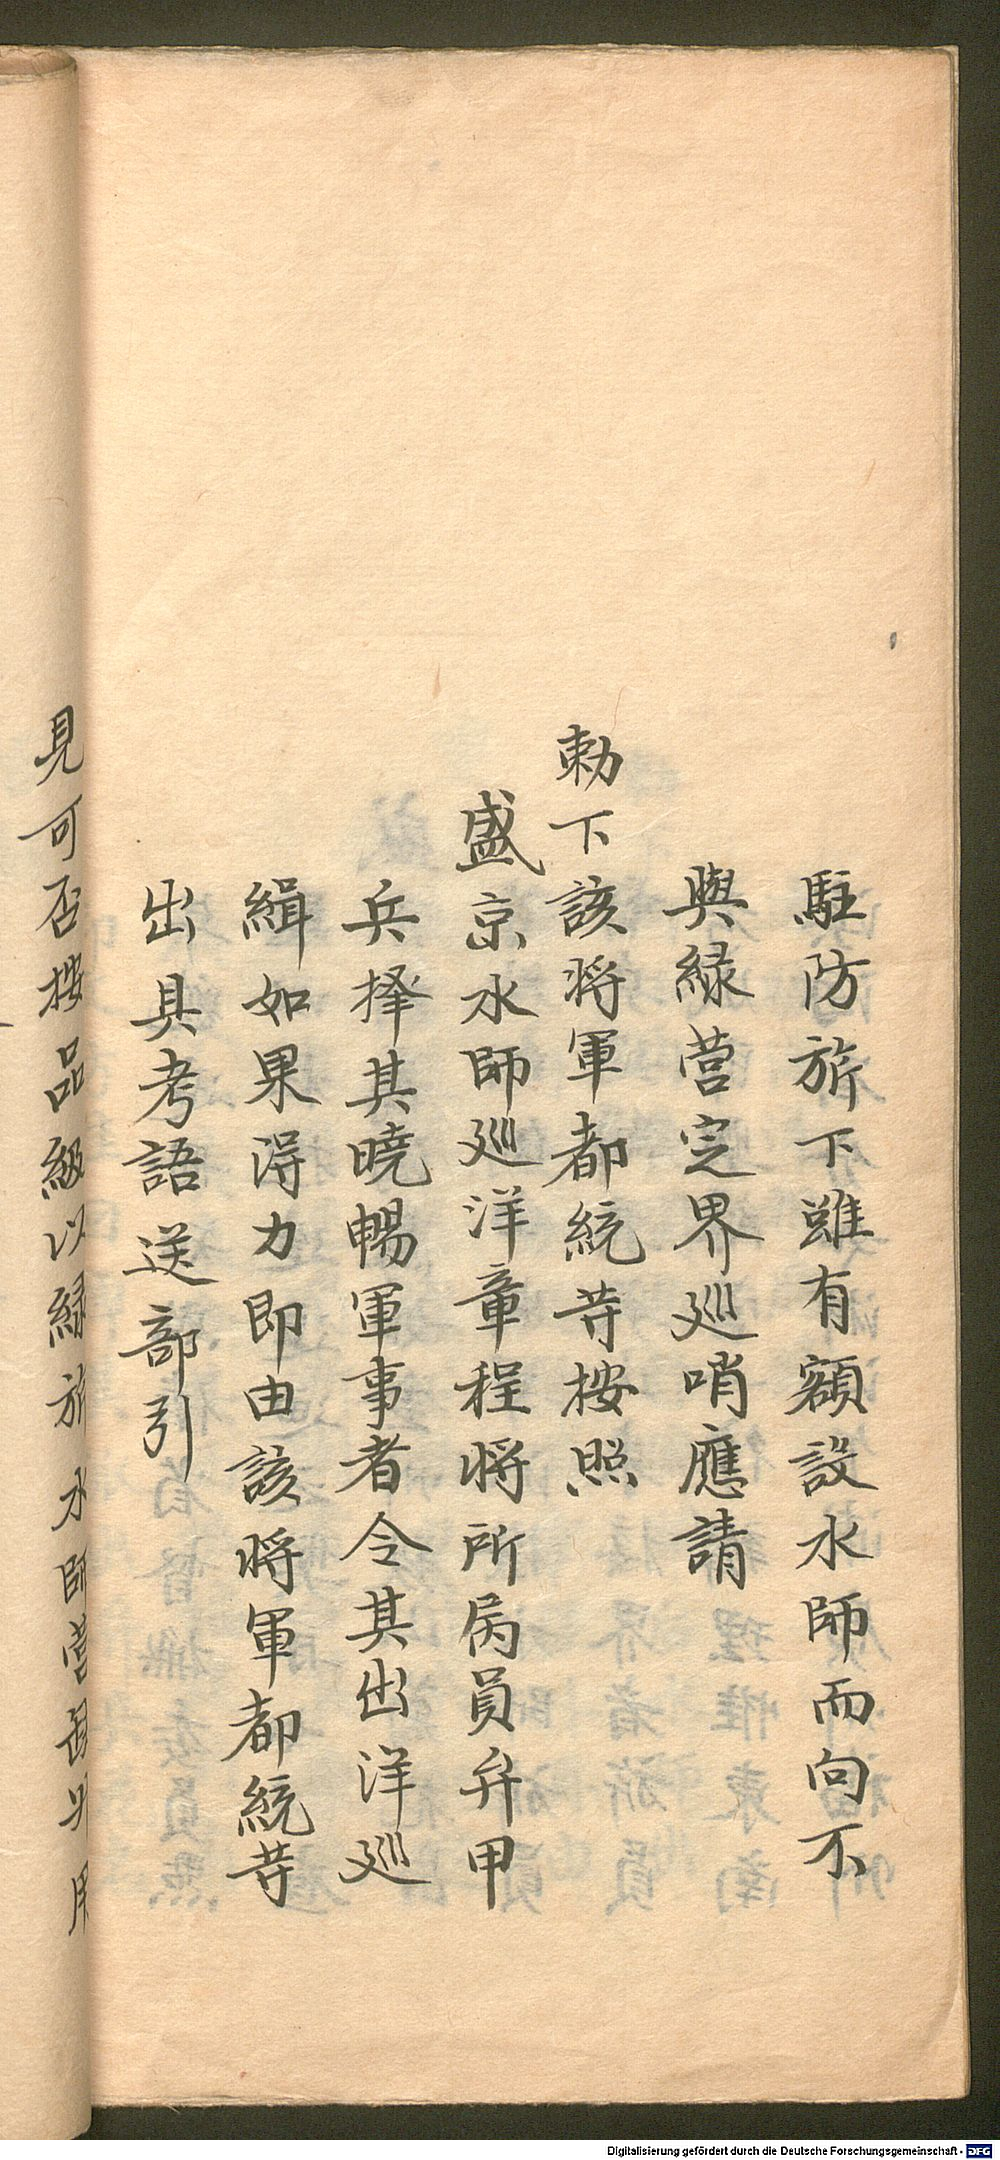 駐防旂下雖有額設水師而向不
與緑营定界巡哨應請
勅下該將軍都統䓁按照
盛京水師巡洋章程將所屬員弁甲
兵擇其曉暢軍事者令其出洋巡
緝如果得力即由該將軍都統䓁
出具考語送部引
見可否按品級以緑旂水師营
Digitalisierung gefördert durch die Deutsche Forschungsgemeinschaft - DFG